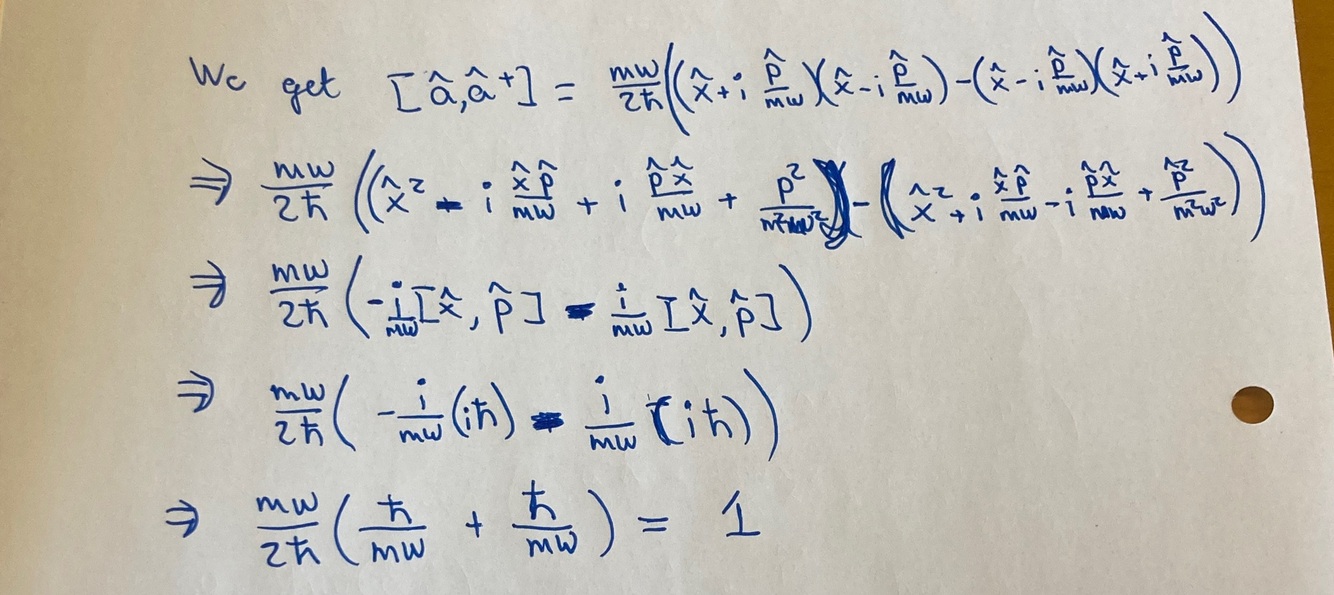 We get [â,â⁺] = mω/2ħ((x̂+i p̂/mω)(x̂-i p̂/mω)-(x̂-i p̂/mω)(x̂+i p̂/mω))
⇒ mω/2ħ ((x̂² - i x̂p̂/mω + i p̂x̂/mω + p̂²/m²ω²)-(x̂²+i x̂p̂/mω - i p̂x̂/mω + p̂²/m²ω²))
⇒ mω/2ħ (-i/mω[x̂, p̂] - i/mω [x̂, p̂])
⇒ mω/2ħ( -i/mω (iħ) - i/mω (iħ))
⇒ mω/2ħ (ħ/mω + ħ/mω) = 1